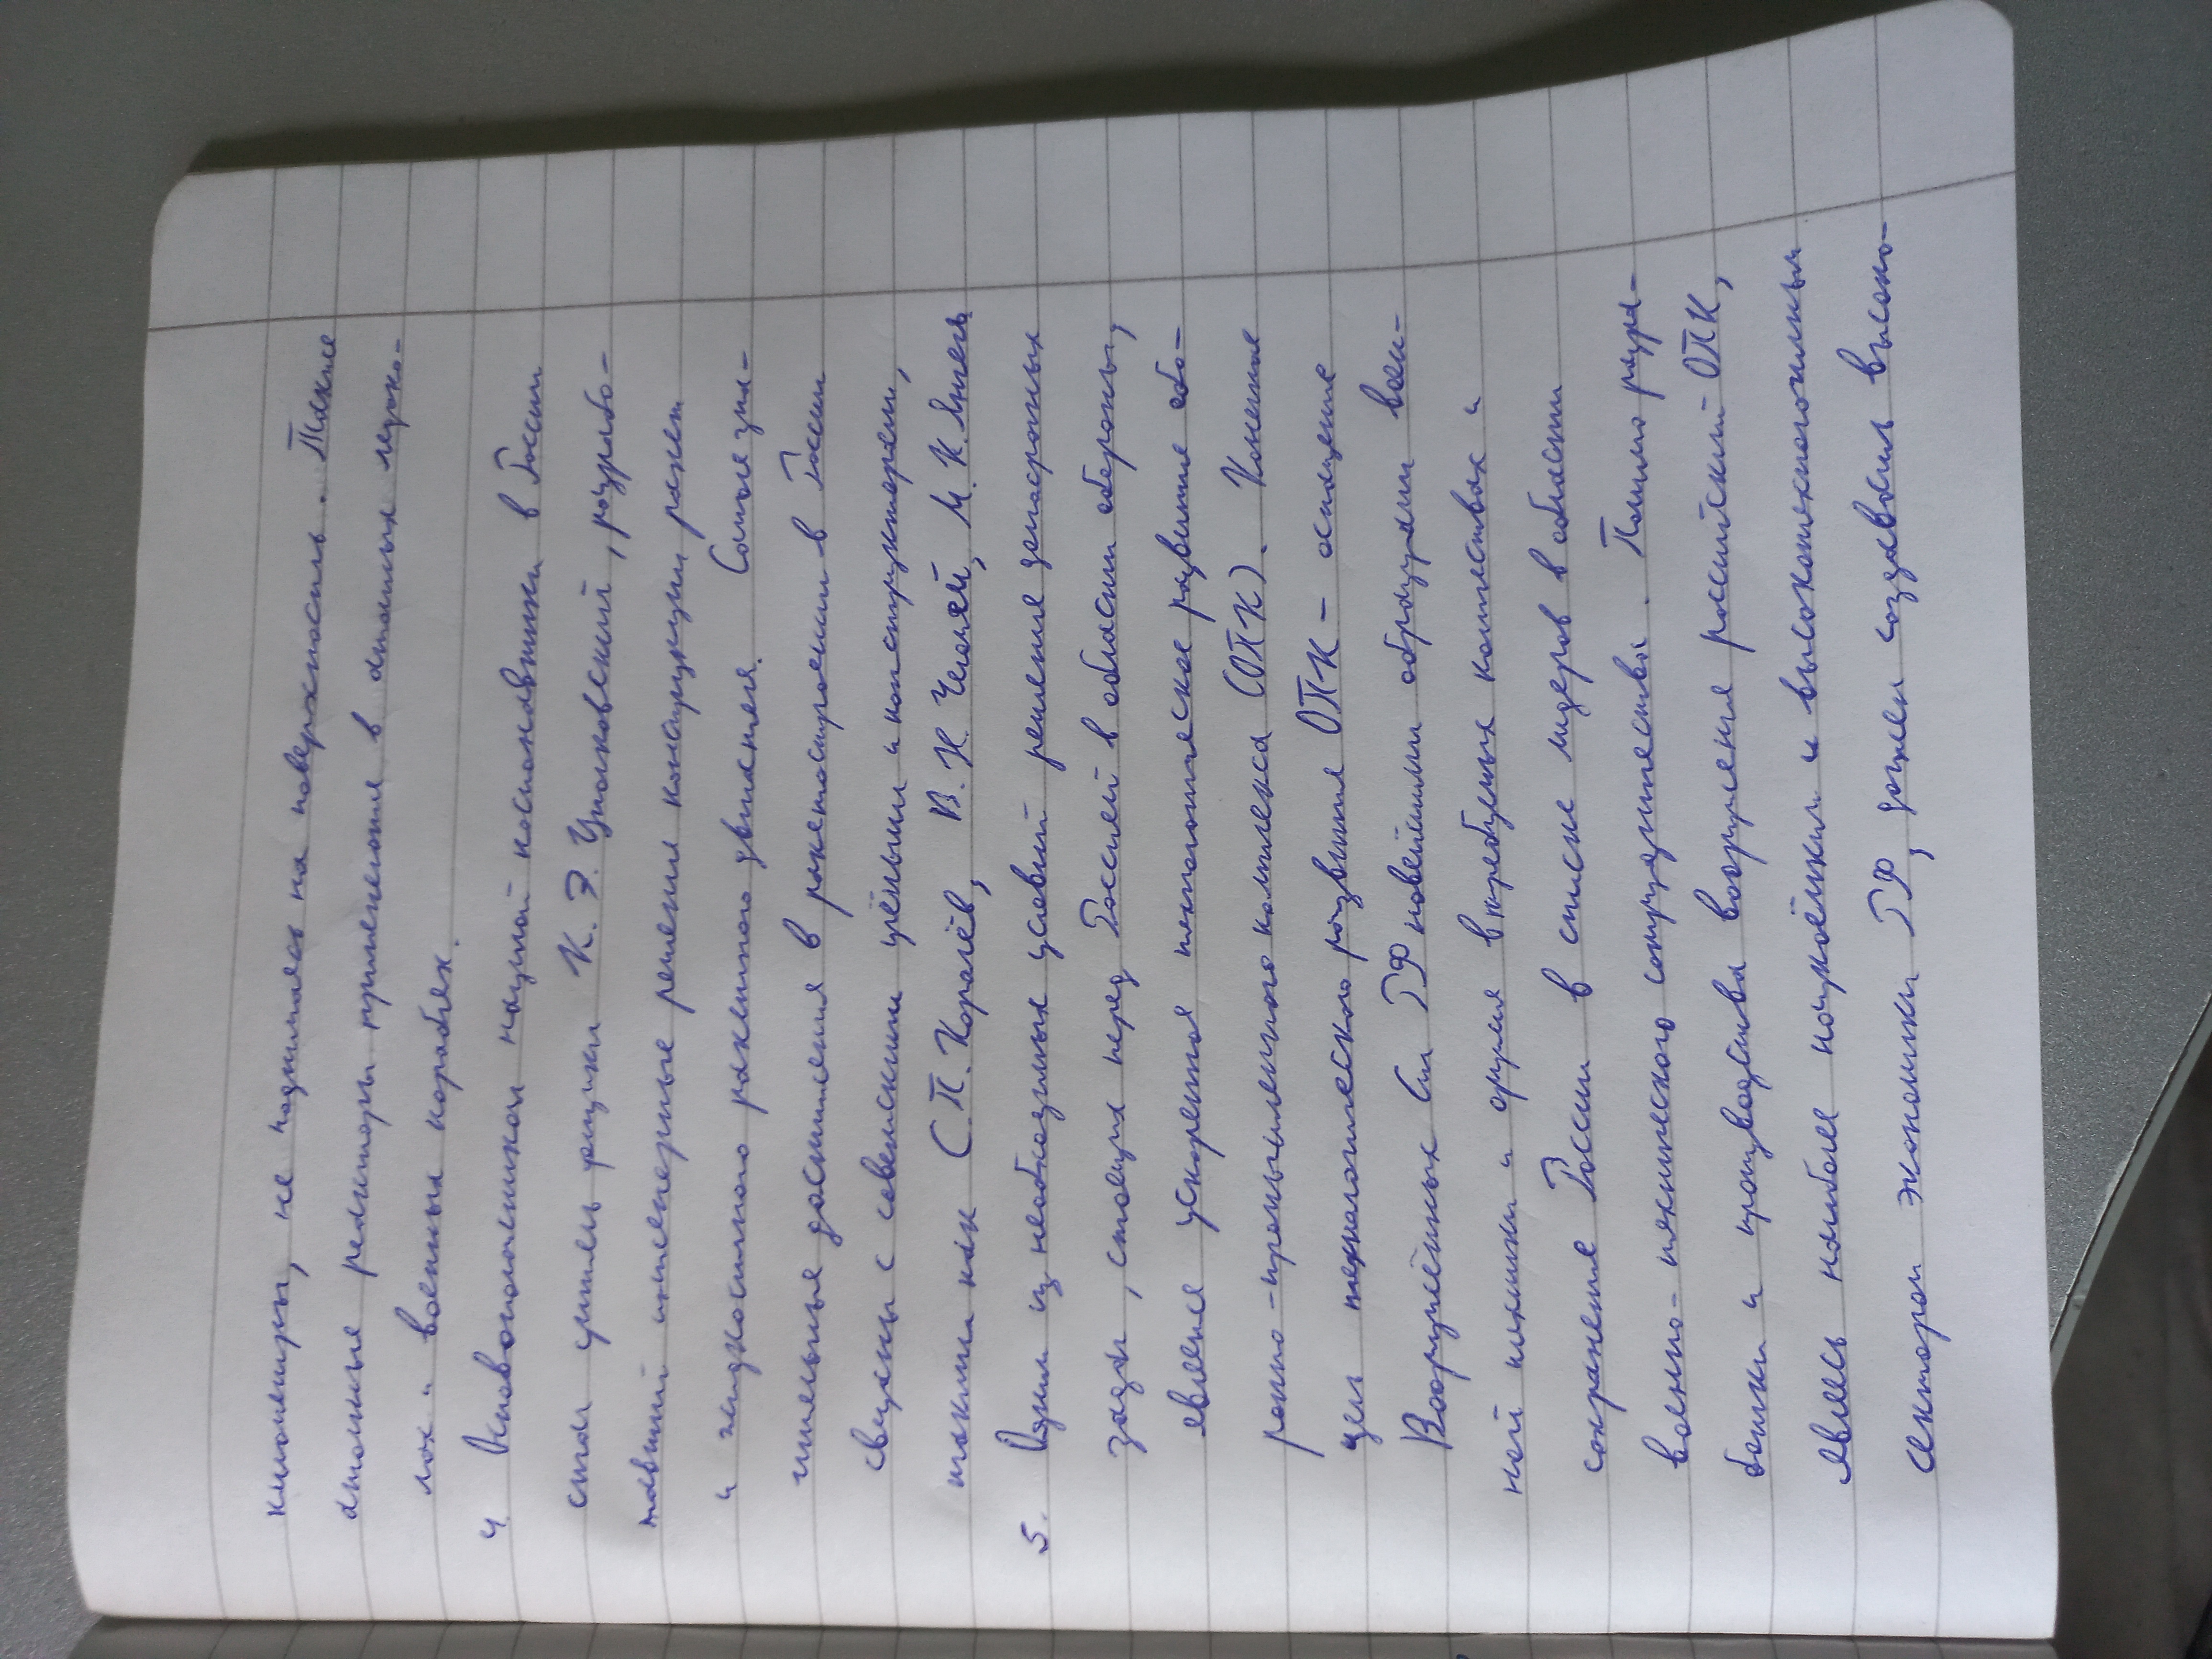 километры, не поднимаясь на поверхность. Такие
атомные реакторы применяются в атомных ледоко-
лах и военных кораблях.
4. Основоположником научной космонавтики в России
стал учитель физики К. Э. Циолковский, разрабо-
тавший инженерные решение конструкции ракет
и жидкостного ракетного двигателя. Самые зна-
чительные достижения в ракетостроении в России
связаны с советскими учёными и конструкторами,
такими как С. П. Королёв, В. Н. Челомей, М. К. Янгель
5. Одним из необходимых условий решения долгосрочных
задач, стоящих перед Россией в области обороны,
является ускоренное технологическое развитие обо-
ронно-промышленного комплекса (ОПК). Конечная
цель технологического развития ОПК - оснащение
Вооружённых Сил РФ новейшими образцами воен-
ной техники и оружия в требуемых количествах и
сохранение России в списке лидеров в области
военно-технического сотрудничества. Помимо разра-
ботки и производства вооружения российский ОПК,
являясь наиболее наукоёмким и высокотехнологичным
сектором экономики РФ, должен создавать высоко-